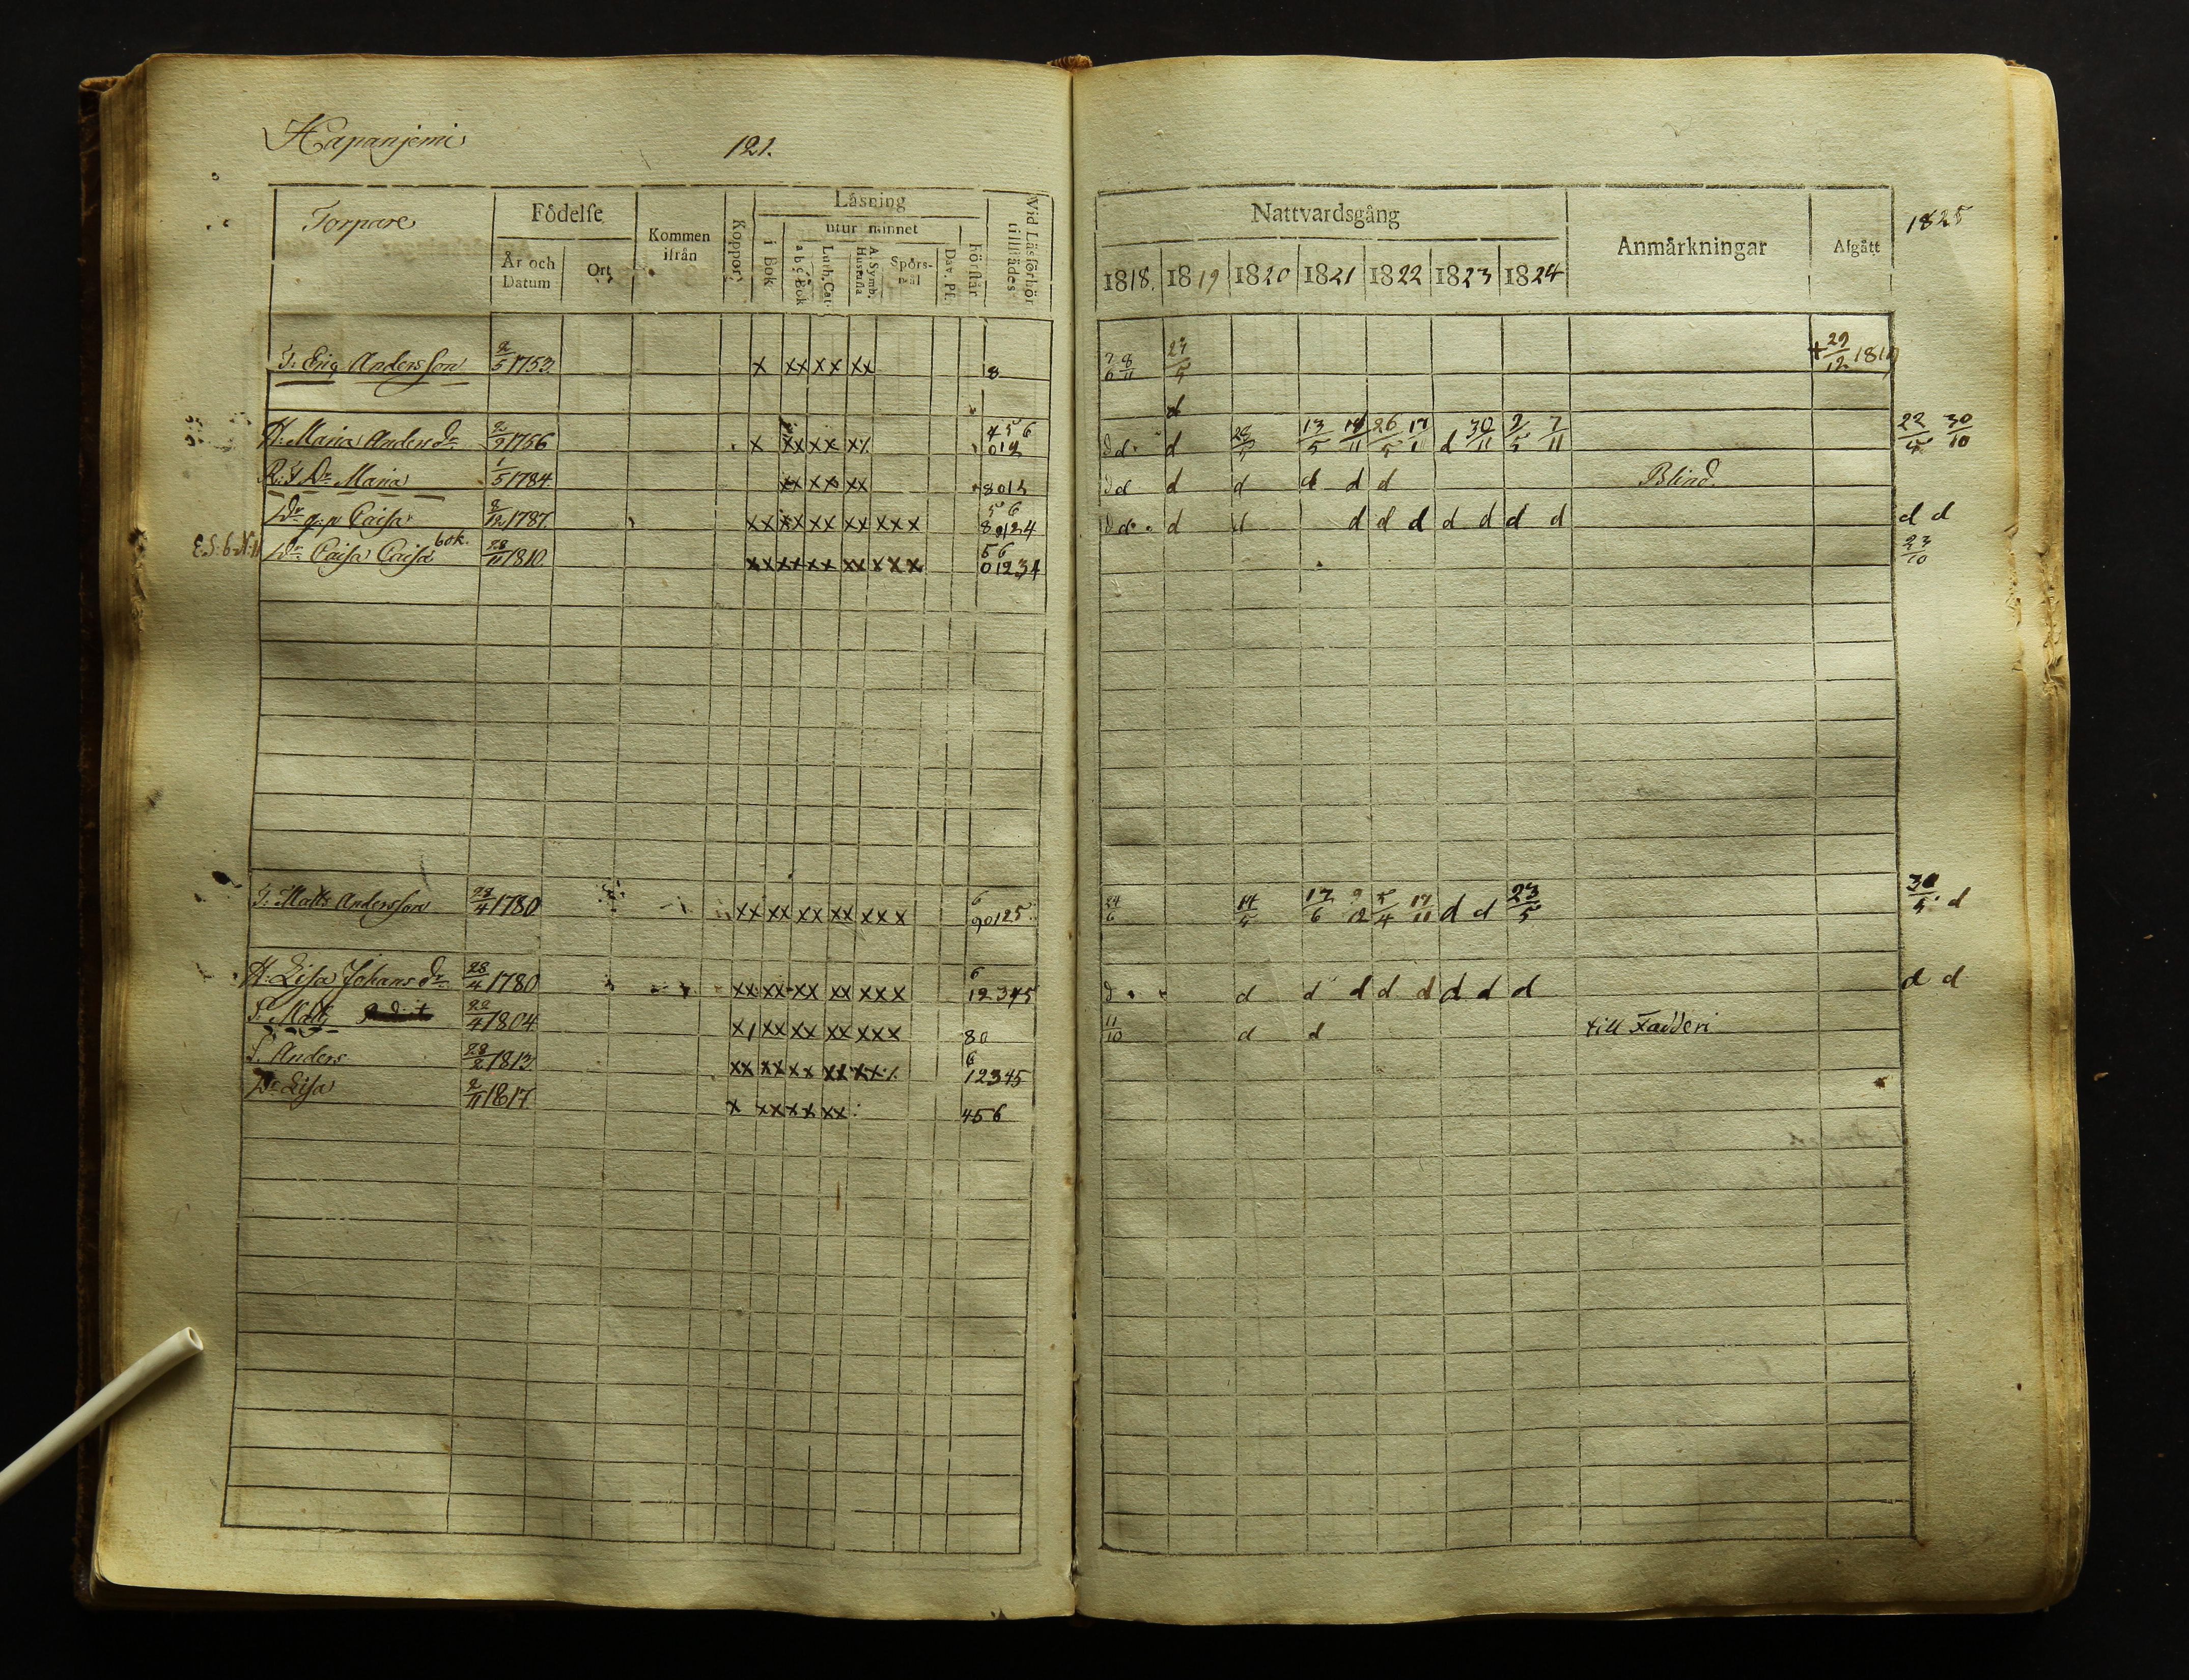 Hapanjemi
121.
Torpare
Födelse
År och Datum
Ort
Kommen ifrån
Koppor
Låsning
i Bok
utur minnet
a b c Bok
Luth. Cat.
A. Symb. Hustafla
Spörsmål
Dav. Ps.
förstår
Vid Läsförhör tillstädes
Nattvardsgång
1818. 1819 1820 1821 1822 1823 1824
Anmärkningar
Afgått
1825
T. Eriq Andersson 2/5 1753. x xx xx xx 8 7/6 8/11 27/5 + 29/12 1819
d
H. Maria Anders dr 2/9 1756 x xx xx x/. 456 012 d d d 28/5 13/5 18/11 26/5 17/11 d 30/11 2/5 7/11 22/5 30/10
Dr Maria 1/5 1784 xx xx xx 8012 d d d d d d d Blind
Dr q. p Caisa 2/12 1787 xx xx xx xx xxx 56 80124 d d d d d d d d d d d d d
Dr Caisa Caisa bok. 28/11 1810. xx xx xx xx xxx 56 01234 23/10
T. Matts Andersson 28/4 1780 xx xx xx xx xxx 6 90125 24/6 14/5 17/6 9/12 5/4 17/11 d d 23/5 30/5 d
H. Lisa Johans dr 28/4 1780 xx xx xx xx xxx 6 12345 d d d d d d d d d d d
S. Matts 22/4 1804 x/ xx xx xx xxx 80 11/10 d d till Fadderi
S. Anders 28/2 1813 xx xx xx xx xx/. 6 12345
Dr Lisa 2/11 1817. x xx xx xx 456